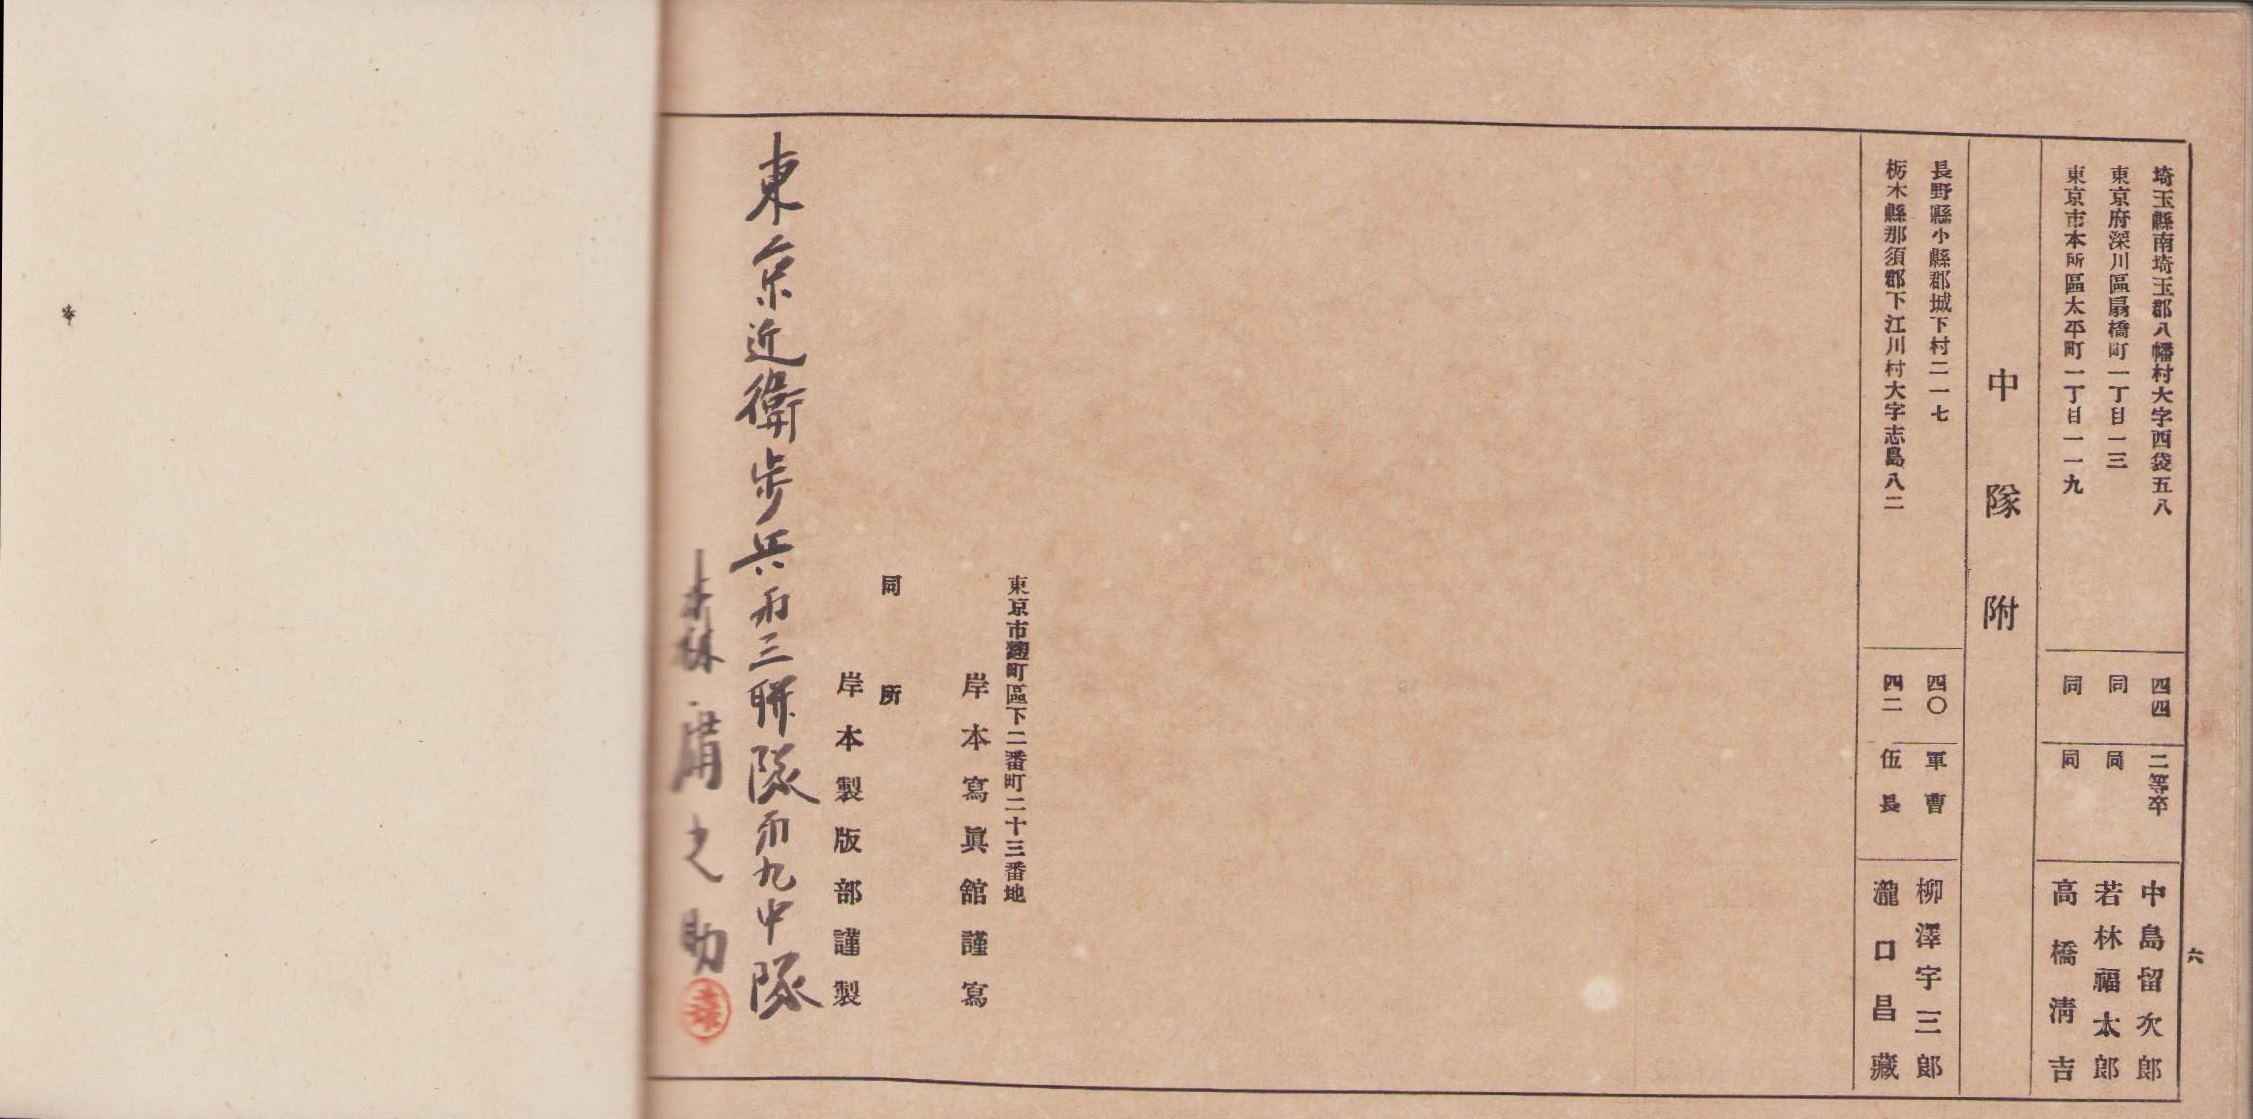 六
埼玉縣南埼玉郡八幡村大字西袋五八 四四 二等卒 中島留次郎
東京府深川區扇橋町一丁目一三 同 同 若林福太郎
東京市本所區太平町一丁目一一九 同 同 高橋淸吉
中隊附
長野縣小縣郡城下村二一七 四〇 軍曹 柳澤宇三郎
栃木縣那須郡下江川村大字志鳥八二 四二 伍長 瀧口昌藏
東京市麴町區下二番町二十三番地
岸本寫眞館謹寫
同所
岸本製版部謹製
東京近衛步兵第三聯隊第九中隊
森庸之助